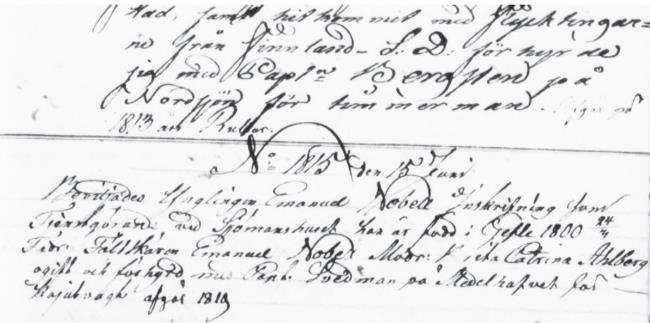 Stad, samt hitkommit med Flycktingar=
ne från Finnland – S. D. förhyrde
sig med Capt:n Bergsten på
Nordsjön för timmerman. Afgår på
1813 års Rullor.
No: 1815 den 13 Juni
Beviljades Ynglingen Emanuel Nobell Inskrifning som
Tjenstgörande vid Sjömanshuset han är född i Gefle 1800 24/3
Fadr: Fältskären Emanuel Nobel Modr: Brita Catrina Ahlberg
ogift och förhyrd med Capt: Svedman på Medelhafvet för
Kajutvagt afgår 1819